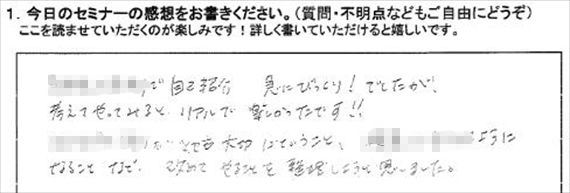 1. 今日のセミナーの感想をお書きください。(質問・不明点などもご自由にどうぞ)
ここを読ませていただくのが楽しみです!詳しく書いていただけると嬉しいです。
で自己紹介 急にびっくり!でしたが、
考えてやってみると、リアルで楽しかったです!!
大切ということ、 ように
なることなど、改めてやることを整理しようと思いました。